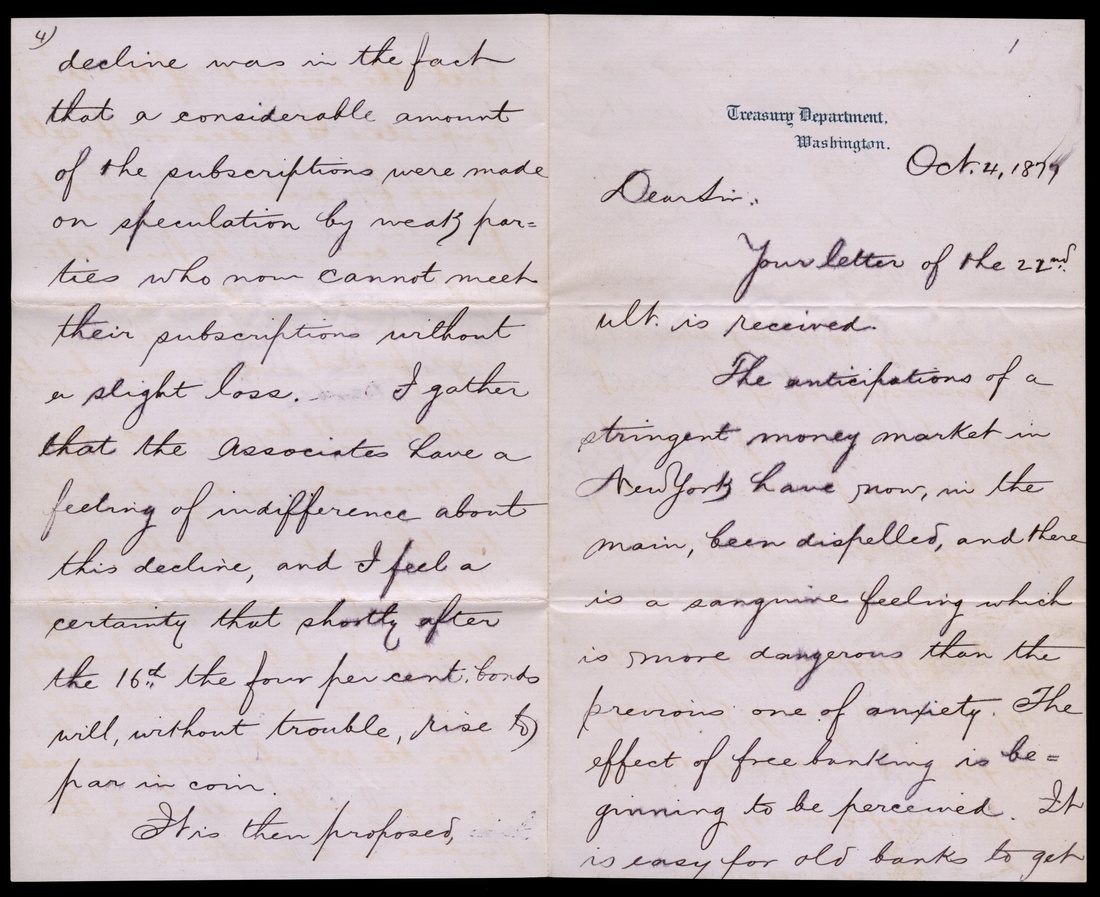 4)
decline was in the fact
that a considerable amount
of the subscriptions were made
on speculation by weak par=
ties who now cannot meet
their subscriptions without
a slight loss. I gather
that the Associates have a
feeling of indifference about
this decline, and I feel a
certainty that shortly after
the 16th the four per cent. bonds
will, without trouble, rise to
par in coin.
It is then proposed,
1
Treasury Department,
Washington.
Oct. 4, 1879
Dear Sir:
Your letter of the 22nd
ult. is received.
The anticipations of a
stringent money market in
New York have now, in the
main, been dispelled, and there
is a sanguine feeling which
is more dangerous than the
previous one of anxiety. The
effect of free banking is be=
ginning to be perceived. It
is easy for old banks to get